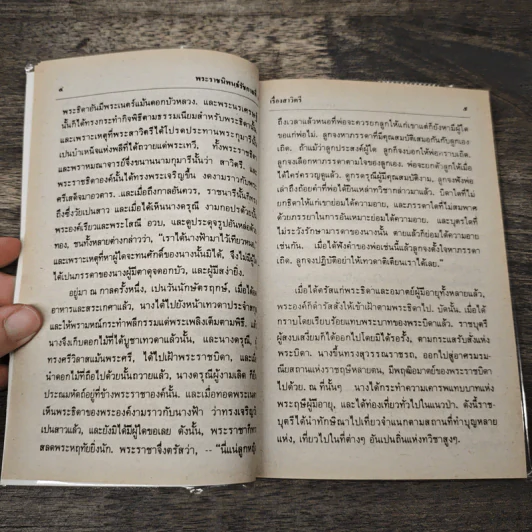 ๔
พระราชนิพนธ์รัชกาลที่
พระธิดาอันมีพระเนตร์แม้นดอกบัวหลวง. และพระนรเศรษฐ์
นั้นก็ได้ทรงกระทำกิจพิธีตามธรรมเนียมสำหรับพระธิดานั้น
และเพราะเหตุที่พระสาวิตรีได้โปรดประทานพระกุมารีนั้น
เป็นบำเหน็จแห่งพลีที่ได้ถวายแด่พระเทวี, ทั้งพระราชธิดา
และพราหมณาจารย์จึ่งขนานนามกุมารีนั้นว่า สาวิตรี. และ
พระราชธิดาองค์นั้นได้ทรงพระเจริญขึ้น งดงามราวกับพระ
ศรีเสด็จมาอวตาร..และเมื่อถึงกาลอันควร, ราชนารีนั้นก็
ถึงซึ่งวัยเป็นสาว และเมื่อได้เห็นนางดรุณี งามกอปรด้วยบั้น
พระองค์เรียวและพระโสณี อวบ. และดูประดุจรูปอันหล่อด้วย
ทอง, ชนทั้งหลายต่างกล่าวว่า, “เราได้นางฟ้ามาไว้เทียวหนอ”
และเพราะเหตุที่หาผู้ใดจะทนศักดิ์ของนางนั้นมิได้, จึงไม่มีผู้
ได้เป็นภรรดาของนางผู้มีตาดุจดอกบัว, และผู้มีสง่ายิ่ง.
อยู่มา ณ กาลครั้งหนึ่ง, เป็นวันนักขัตรฤกษ์, เมื่อได้อด
อาหารและสระเกศาแล้ว, นางได้ไปยังหน้าเทวดาประจำ
และให้พราหมณ์กระทำพลีกรรมแด่พระเพลิงเต็มตามพิธี. แล้ว
นางจึ่งเก็บดอกไม้ที่ได้บูชาเทวดาแล้วนั้น, และนางดรุณี, ผู้
ทรงศรีวิลาสแม้นพระศรี, ได้ไปเฝ้าพระราชบิดา, และ
นำดอกไม้ที่ถือไปด้วยนั้นถวายแล้ว, นางดรุณีผู้งามเลิศ ก็
ประณมหัตถ์อยู่ที่ข้างพระราชาองค์นั้น. และเมื่อทอดพระเนตร
เห็นพระธิดาของพระองค์งามราวกับนางฟ้า ว่าทรงเจริญ
เป็นสาวแล้ว, และยังมิได้มีผู้ใดขอเลย ดังนั้น, พระราชาก็
สลดพระหฤทัยยิ่งนัก. พระราชาจึ่งตรัสว่า, -- “นี่แน่ลูกหญิง
เรื่องสาวิตรี
๕
ถึงเวลาแล้วหนอที่พ่อจะควรยกลูกให้แก่เขาแต่ก็ยังหามีผู้ใด
ขอแก่พ่อไม่. ลูกจงหาภรรดาที่มีคุณสมบัติเสมอกันกับลูกเอง
เถิด. ถ้าแม้ว่าลูกประสงค์ผู้ใด ลูกก็จงบอกให้พ่อทราบเถิด.
ลูกจงเลือกหาภรรดาตามใจของลูกเอง. พ่อจะยกตัวลูกให้เมื่อ
ได้ใคร่ครวญดูแล้ว. ดูกรดรุณีผู้มีคุณสมบัติงาม, ลูกจงฟังพ่อ
เล่าถึงถ้อยคำที่พ่อได้ยินเหล่าทวิชากล่าวมาแล้ว. บิดาใดที่ไม่
ยกธิดาให้แก่เขาย่อมได้ความอาย, และภรรดาใดที่ไม่สมพาศ
ด้วยภรรยาในกาลอันเหมาะย่อมได้ความอาย. และบุตรใดที่
ไม่ระวังรักษามารดาของนางนั้น ตายแล้วก็ย่อมได้ความอาย
เช่นกัน. เมื่อได้ฟังคำของพ่อเช่นนี้แล้วลูกจงตั้งใจหาภรรดา
เถิด. ลูกจงปฏิบัติอย่าให้เทวดาติเตียนเราได้เลย.”
เมื่อได้ตรัสแก่พระธิดาและอมาตย์ผู้มีอายุทั้งหลายแล้ว,
พระองค์ก็ดำรัสสั่งให้เข้าเฝ้าตามพระธิดาไป. บัดนั้น, เมื่อได้
กราบโดยเรียบร้อยแทบพระบาทของพระบิดาแล้ว, ราชบุตรี
ผู้สงบเสงี่ยมก็ได้ออกไปโดยมิได้รอรั้ง, ตามกระแสรับสั่งแห่ง
พระบิดา. นางขึ้นทรงสุวรรณราชรถ, ออกไปสู่อาศรมรม-
ณียสถานแห่งราชฤษีหลายตน, มีพฤฒิอมาตย์ของพระราชบิดา
ไปด้วย. ณ ที่นั้นๆ นางได้กระทำความเคารพแทบบาทแห่ง
พระฤษีผู้มีอายุ, และได้ท่องเที่ยวทั่วไปในแนวป่า. ดังนี้ราช-
บุตรีได้นำทักษิณาไปเที่ยวจำแนกตามสถานที่ทำบุญหลาย
แห่ง, เที่ยวไปในที่ต่างๆ อันเป็นถิ่นแห่งทวิชาสูงๆ.